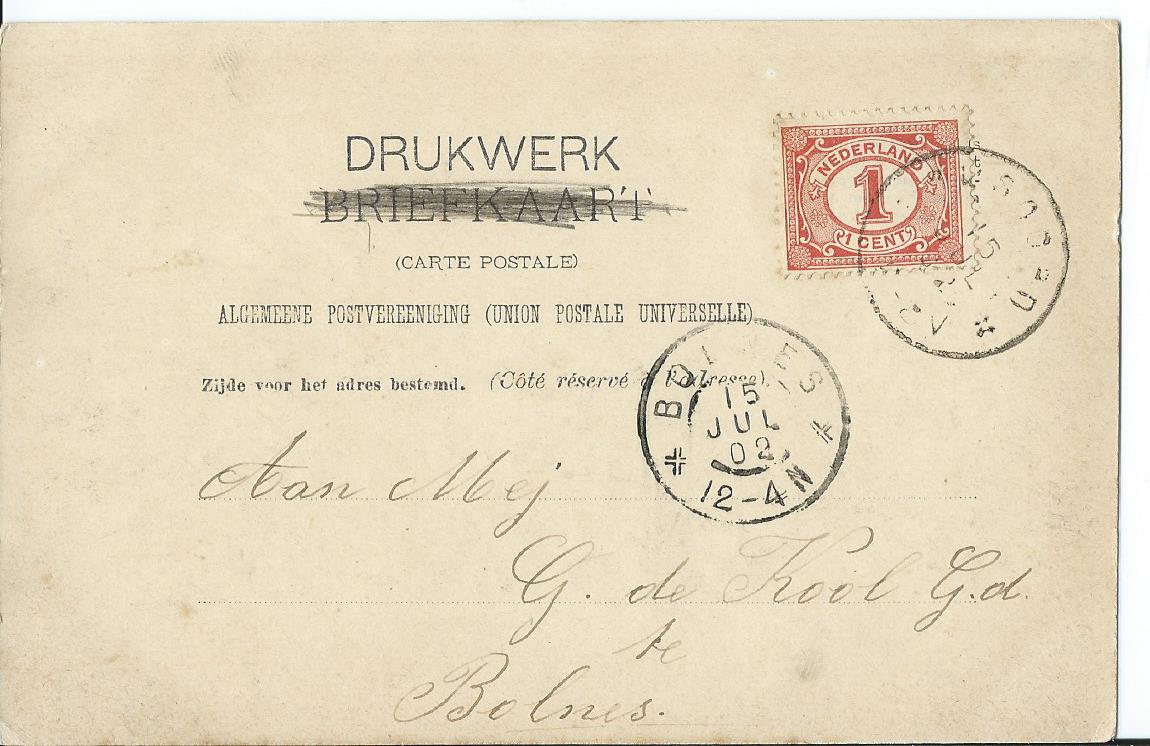 DRUKWERK
BRIEFKAART
(CARTE POSTALE)
ALGEMEENE POSTVEREENIGING (UNION POSTALE UNIVERSELLE)
Zijde voor het adres bestemd. (Côté réservé à l'adresse)
NEDERLAND
1
1 CENT
BOLNES
15
JUL
02
12-4N
Aan Mej
G. de Kool Gd.
te
Bolnes.